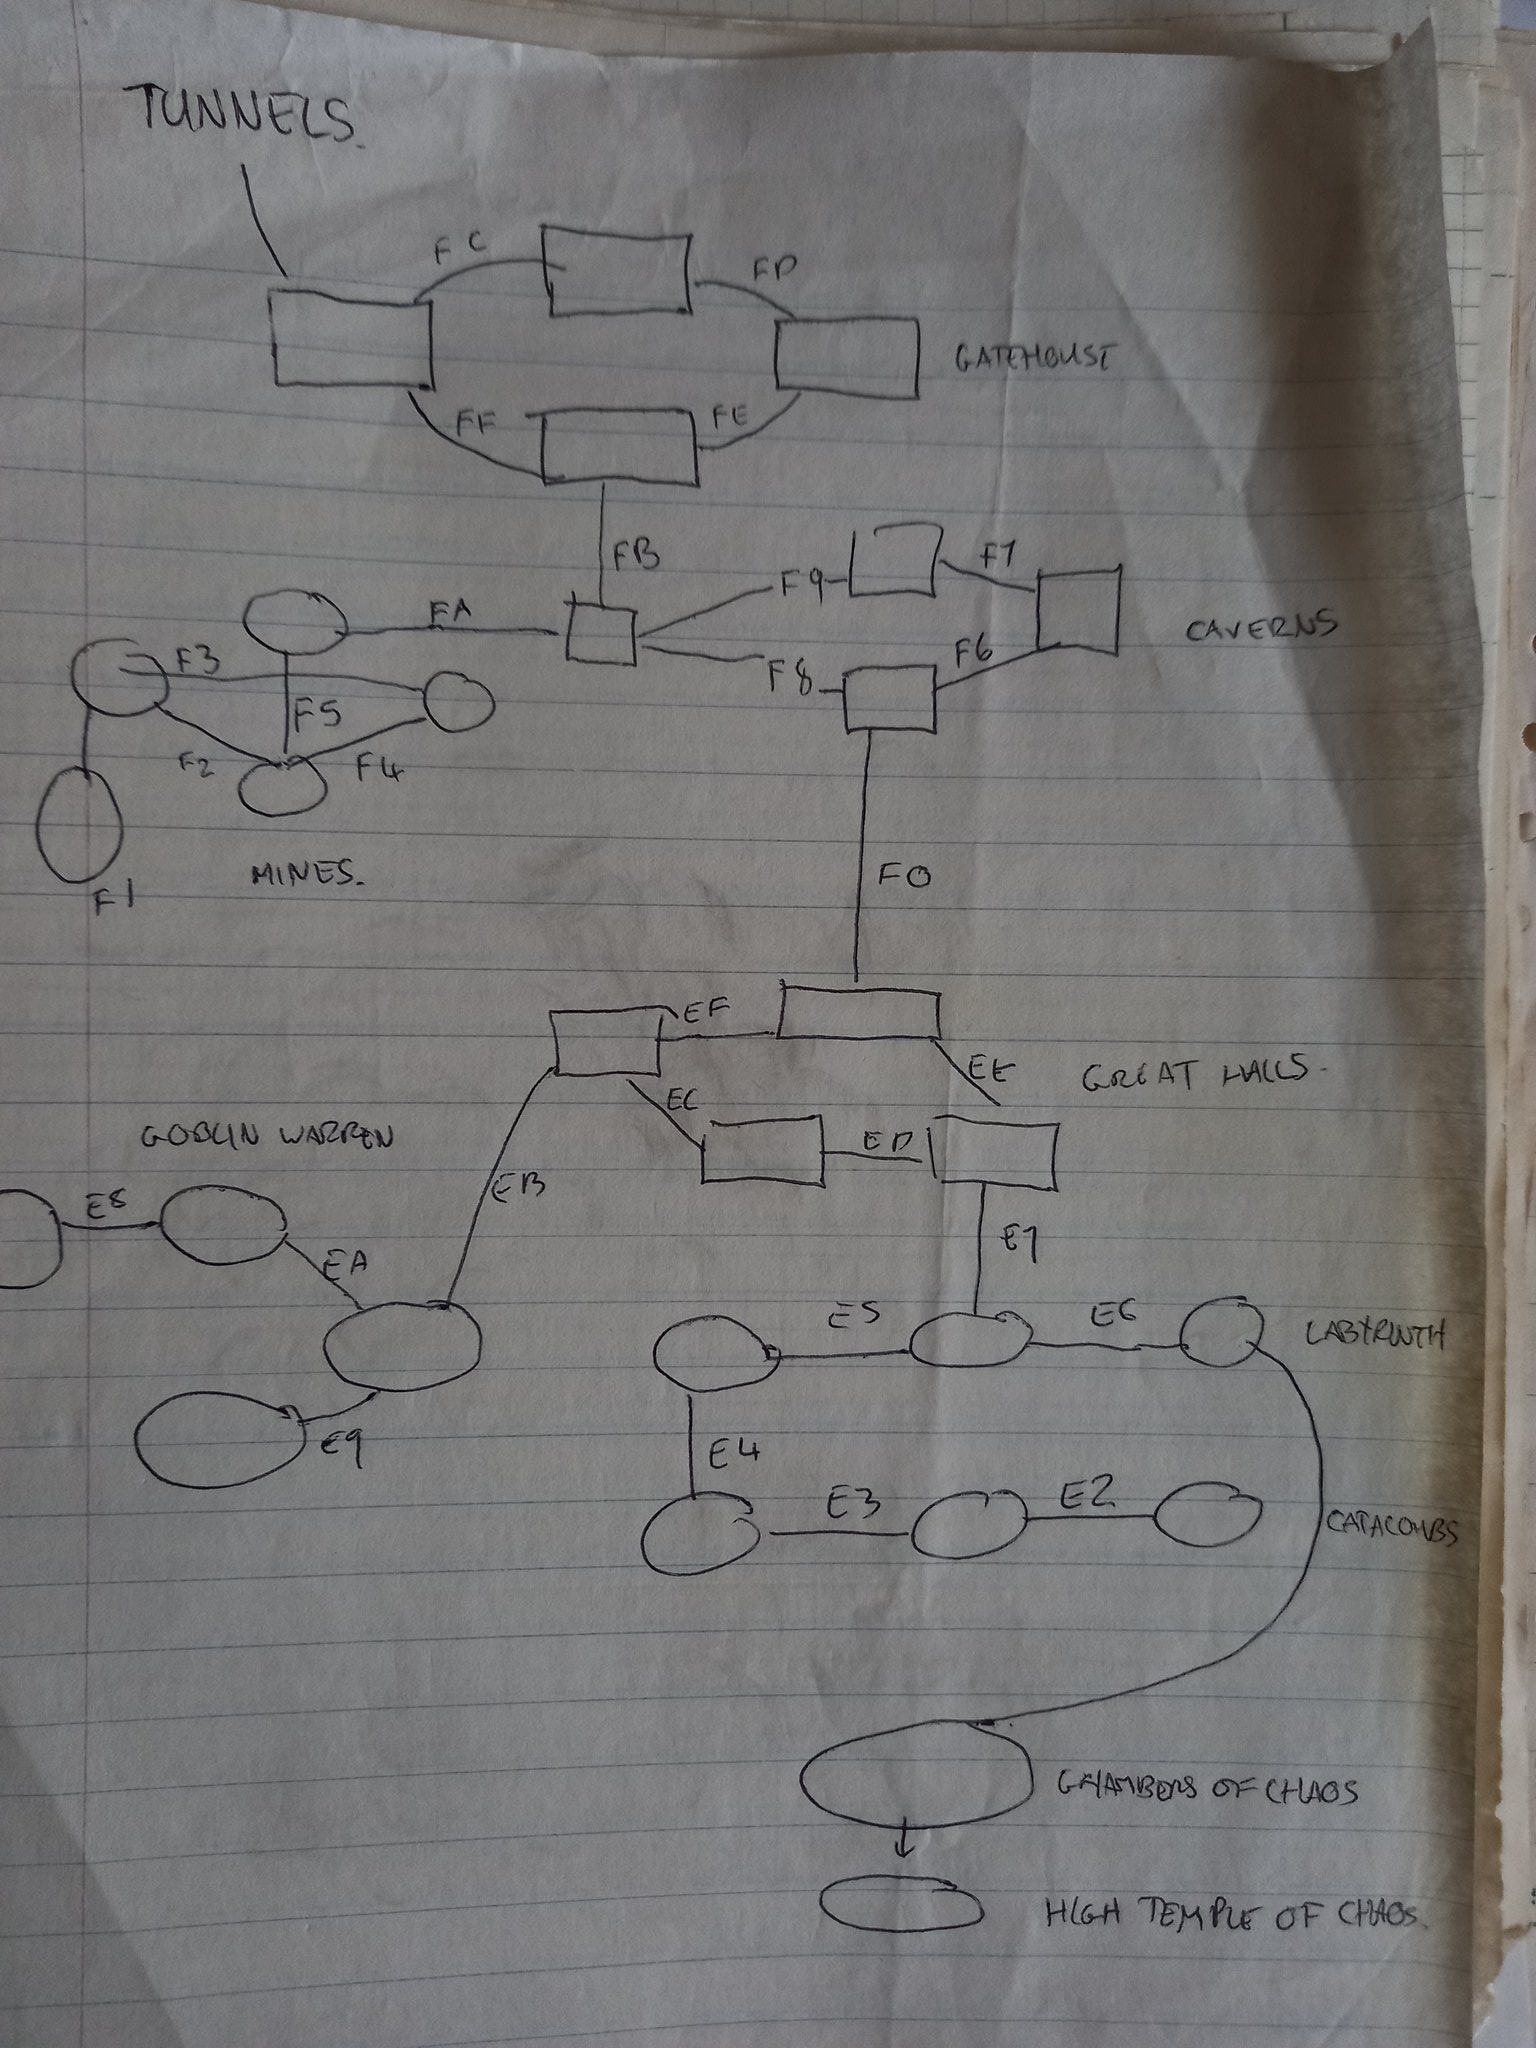 TUNNELS.
FC
FD
GATEHOUSE
FF
FE
FB
F9
F7
FA
CAVERNS
F3
F8
F6
F5
F2
F4
MINES.
F1
F0
EF
EE
GREAT HALLS.
EC
ED
GOBLIN WARREN
EB
E8
EA
E7
E5
E6
LABYRINTH
E9
E4
E3
E2
CATACOMBS
CHAMBERS OF CHAOS
HIGH TEMPLE OF CHAOS.